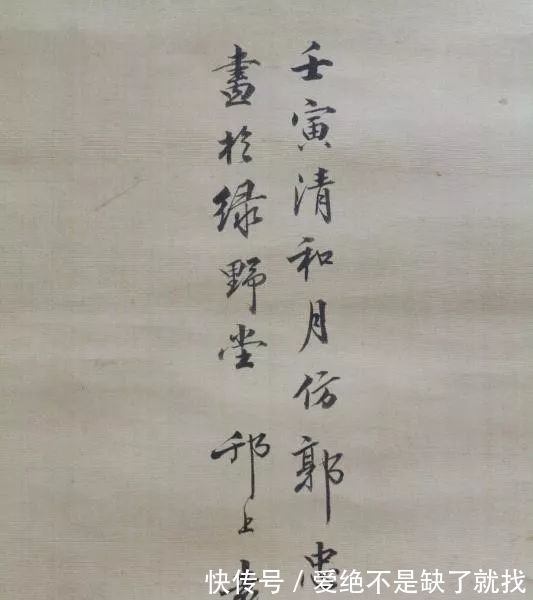 壬寅清和月仿郭忠
畫於绿野堂 邗上
快传号 / 爱绝不是缺了就找